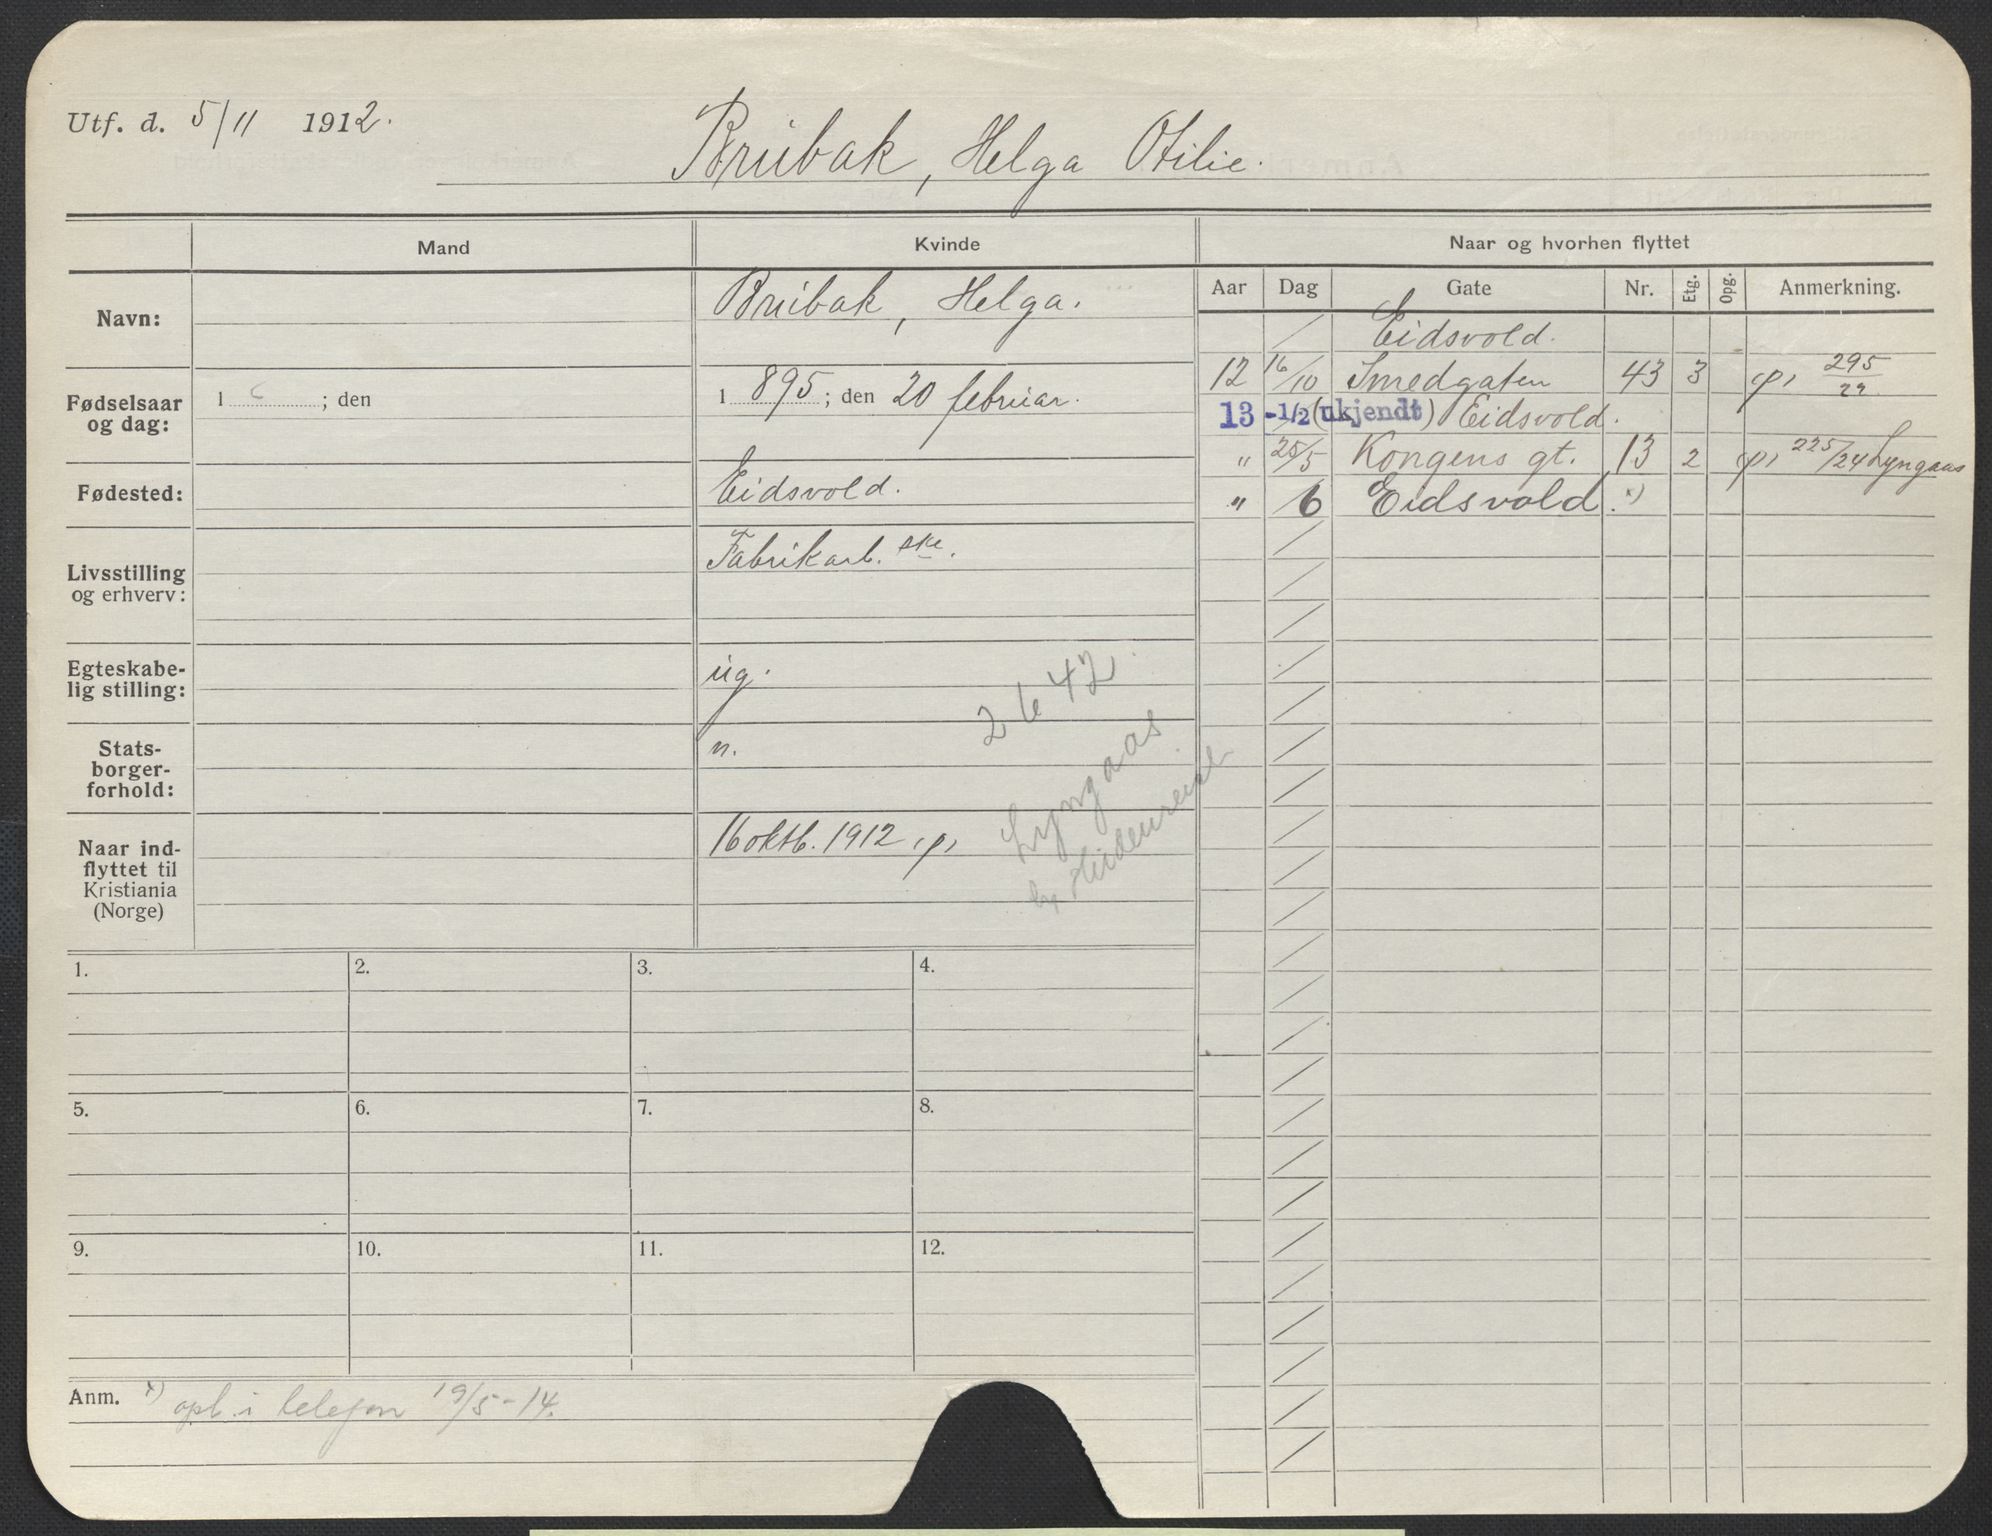 Utf. d. 5/11 1912.
Brubak, Helga Otilie.
Mand
Kvinde
Naar og hvorhen flyttet
Aar Dag Gate Nr. Etg. Opg. Anmerkning.
Navn:
Brubak, Helga.
Fødselsaar
og dag:
1 ; den
1 895 ; den 20 februar.
Fødested:
Eidsvold.
Livsstilling
og erhverv:
Fabrikarb.ske.
Egteskabe-
lig stilling:
ug.
Stats-
borger-
forhold:
n.
Naar ind-
flyttet til
Kristiania
(Norge)
16 oktb. 1912 (p)
2 b 42
Lyngaas
Eidsvold.
12 16/10 Smedgaten 43 3 (p) 295/22
13 -1/2 (ukjendt) Eidsvold.
" 25/5 Kongens gt. 13 2 (p) 225/24 Lyngaas
" /6 Eidsvold. x)
1.
2.
3.
4.
5.
6.
7.
8.
9.
10.
11.
12.
Anm. x) opl. i telefon 19/5-14.